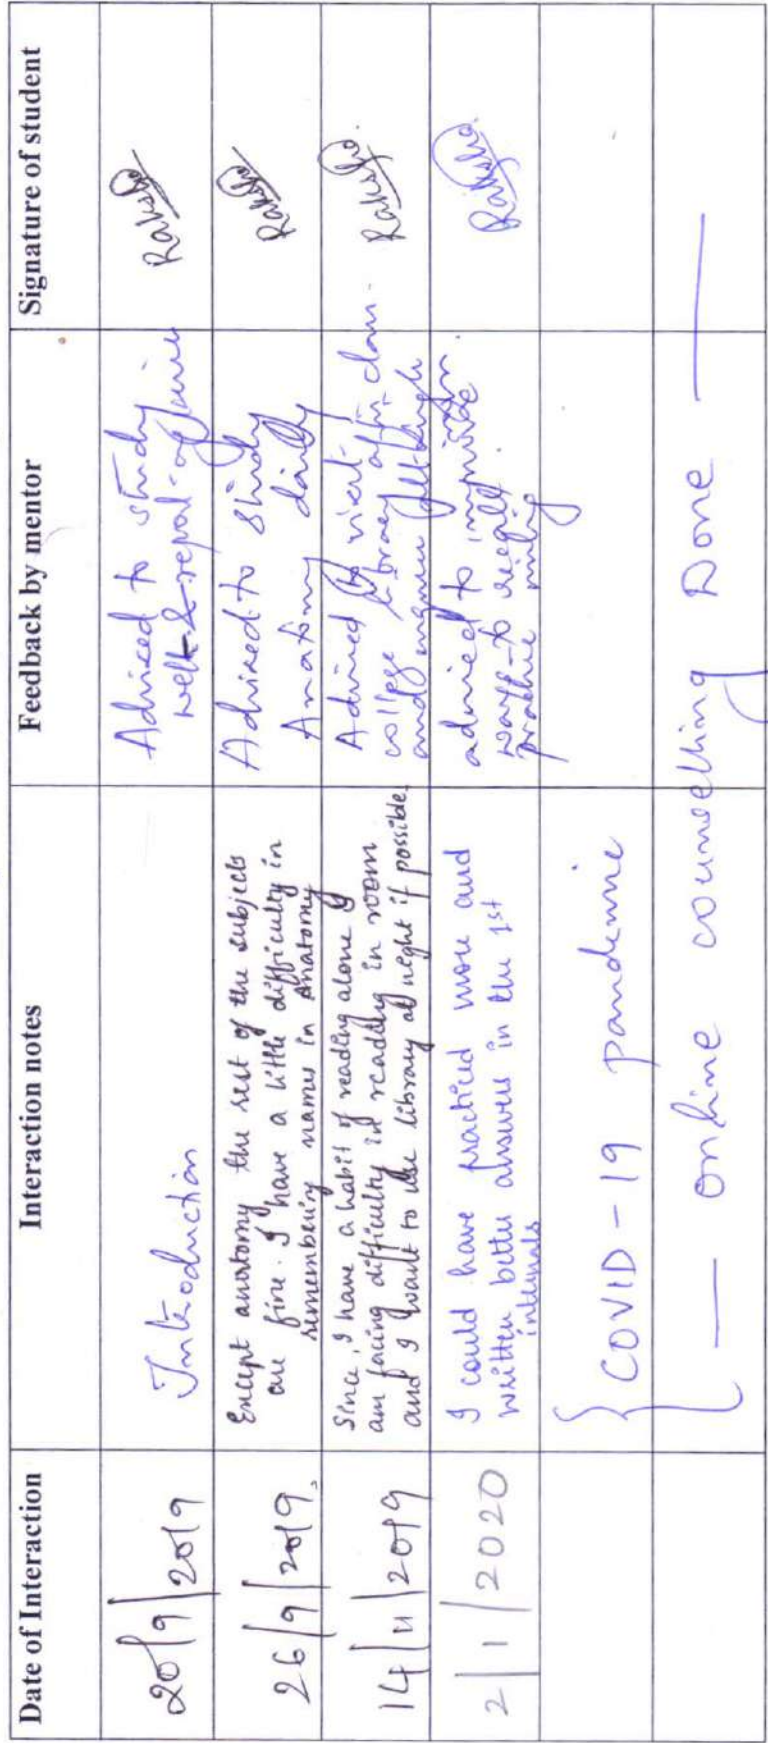 Date of Interaction
Interaction notes
Feedback by mentor
Signature of student
20/9/2019
Introduction
Adviced to study
well & report again
Raksha
26/9/2019.
Except anatomy the rest of the subjects
are fine. I have a little difficulty in
remembering names in Anatomy
Adviced to study
Anatomy daily
Raksha
14/11/2019
Since, I have a habit of reading alone I
am facing difficulty in reading in room
and I want to use library at night if possible.
Adviced to visit
college library after class
and
Raksha.
2/1/2020
I could have practiced more and
written better answers in the 1st
internals
adviced to improvise
ways to recall
practice writing
Raksha.
COVID-19 pandemic
— online counselling Done —